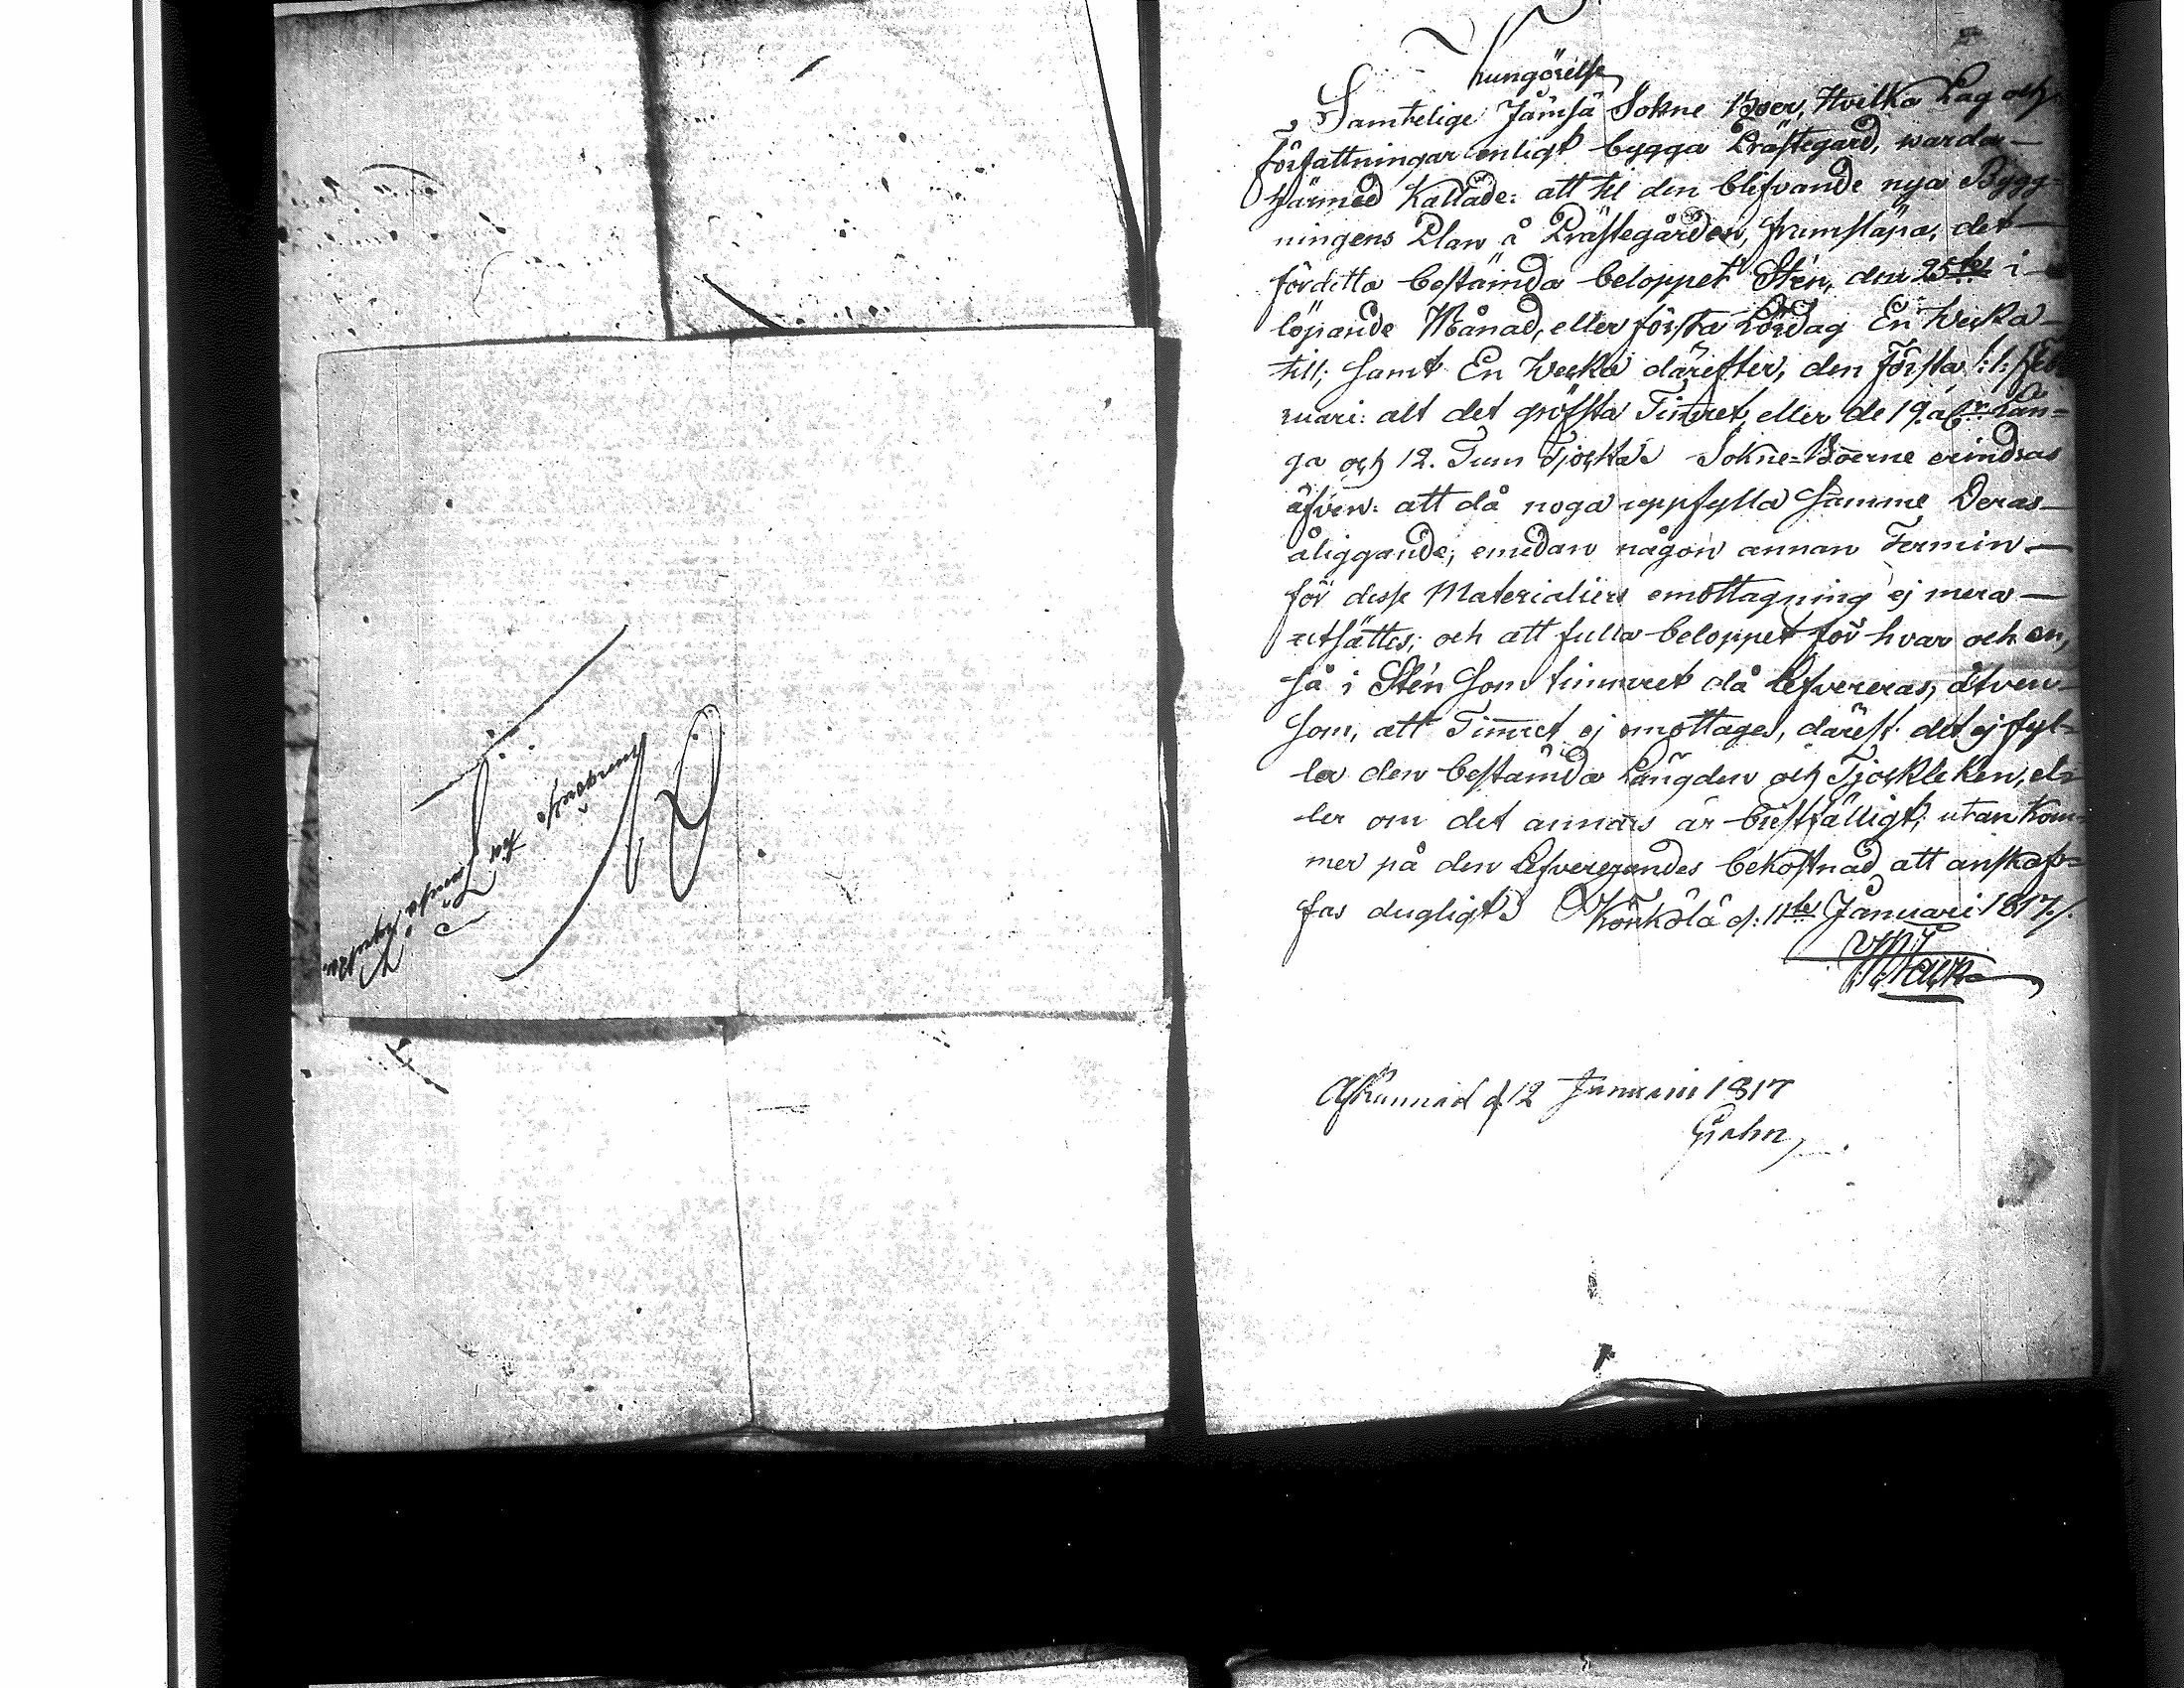 Kungörelse
Samtelige Jämsä Sokne Boer, Hvilka Lag och
författningar enligt bygga Prästegård, warda
härmed Kallade: att til den blifvande nya Bygg-
ningens Plan å Prästegården, framsläpa, det
för detta bestämda beloppet Sten, den 25te i
löpande Månad, eller första Lördag En Wecka
till; samt En Wecka därefter, den första /:1:/ Feb
ruari: alt det grösta Timret, eller de 19. al:r Län-
ga och 12. Tum Tjocka. Sokne-Boerne erindras
äfven: att då noga uppfylla samme Deras
åliggande, emedan någon annan Termin
för desse Materialiers emottagning ej mera
utsättes; och att fulla beloppet för hvar och en,
så i Sten som timmret då lefvereras, äfven
som, att Timret ej emottages, därest det ej fyl-
ler den bestämda Längden och Tjockleken, el-
ler om det annars är bristfälligt, utan kom-
mer på den Lefvererandes bekostnad att anskaf-
fas dugligt. Könkölä d: 11te Januari 1817./.
Afkunnad d. 12 Januari 1817
Grahn